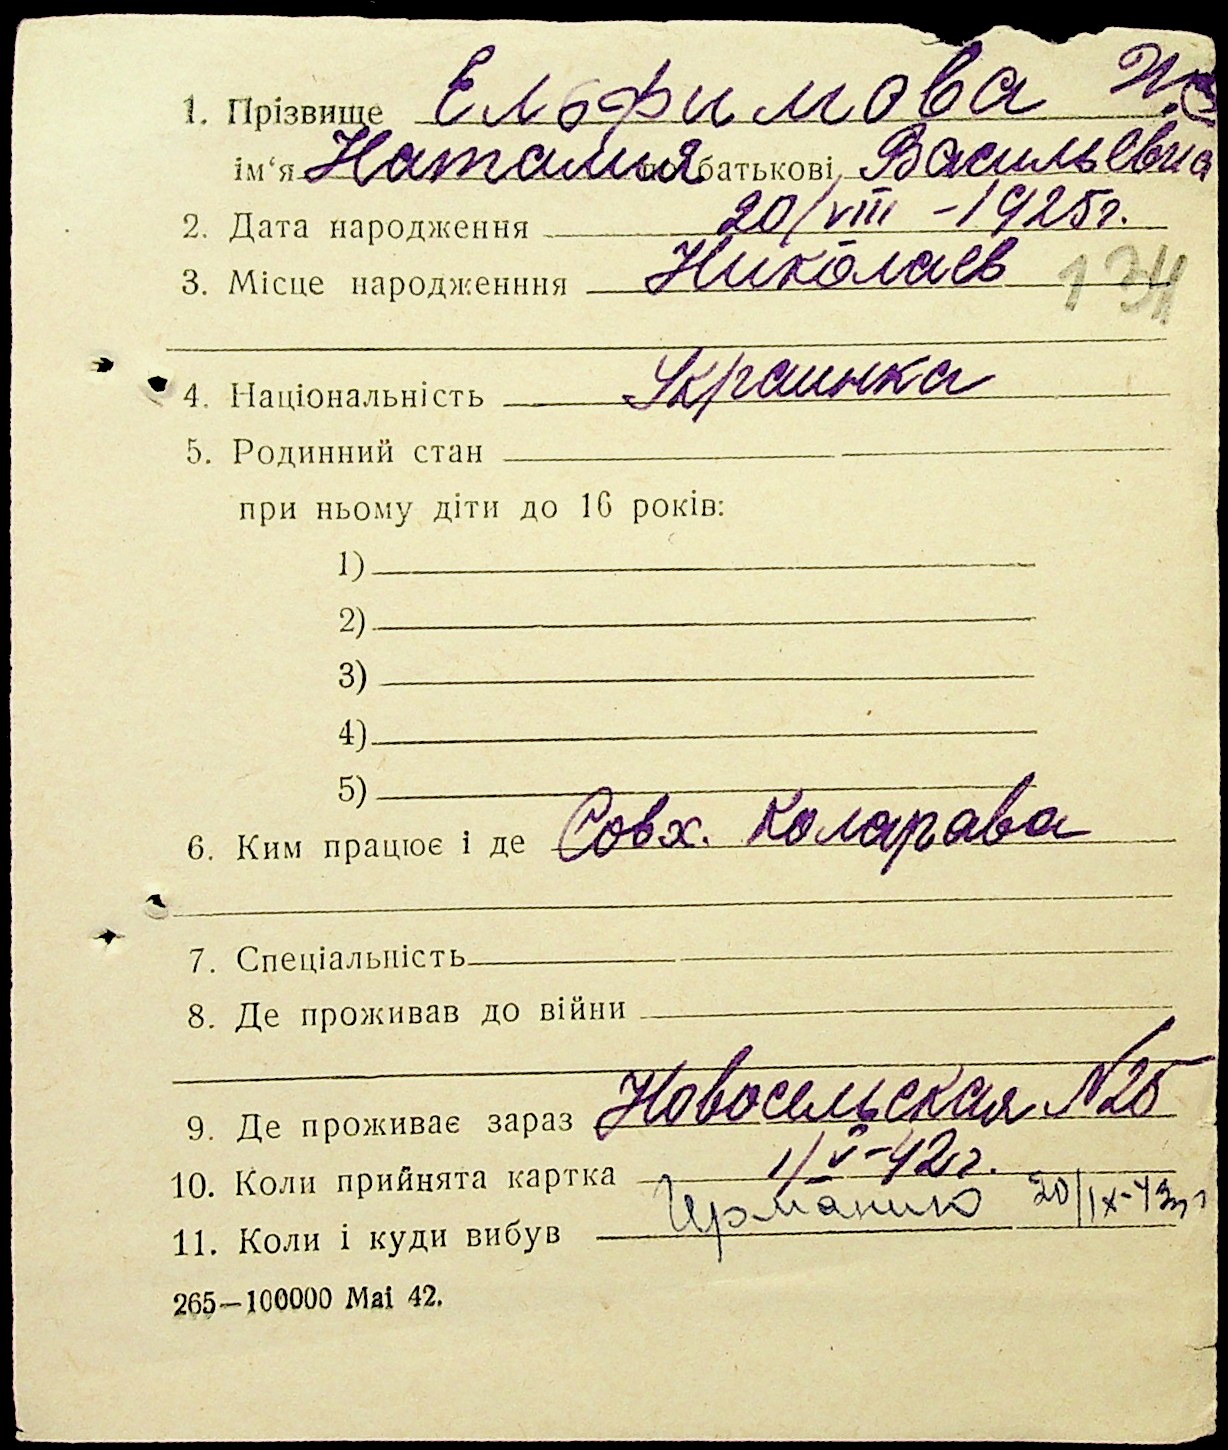 1. Прізвище Елефимова
ім‘я Наталия по батькові Васильевна
2. Дата народження 20/VIII -1925г.
3. Місце народженння Николаев 134
4. Національність Украинка
5. Родинний стан
при ньому діти до 16 років:
1)
2)
3)
4)
5)
6. Ким працює і де Совх. Коларава
7. Спеціальність
8. Де проживав до війни
9. Де проживає зараз Новосельская №25
10. Коли прийнята картка 1/V-42г.
11. Коли і куди вибув Германию 20/IX-43г
265—100000 Mai 42.